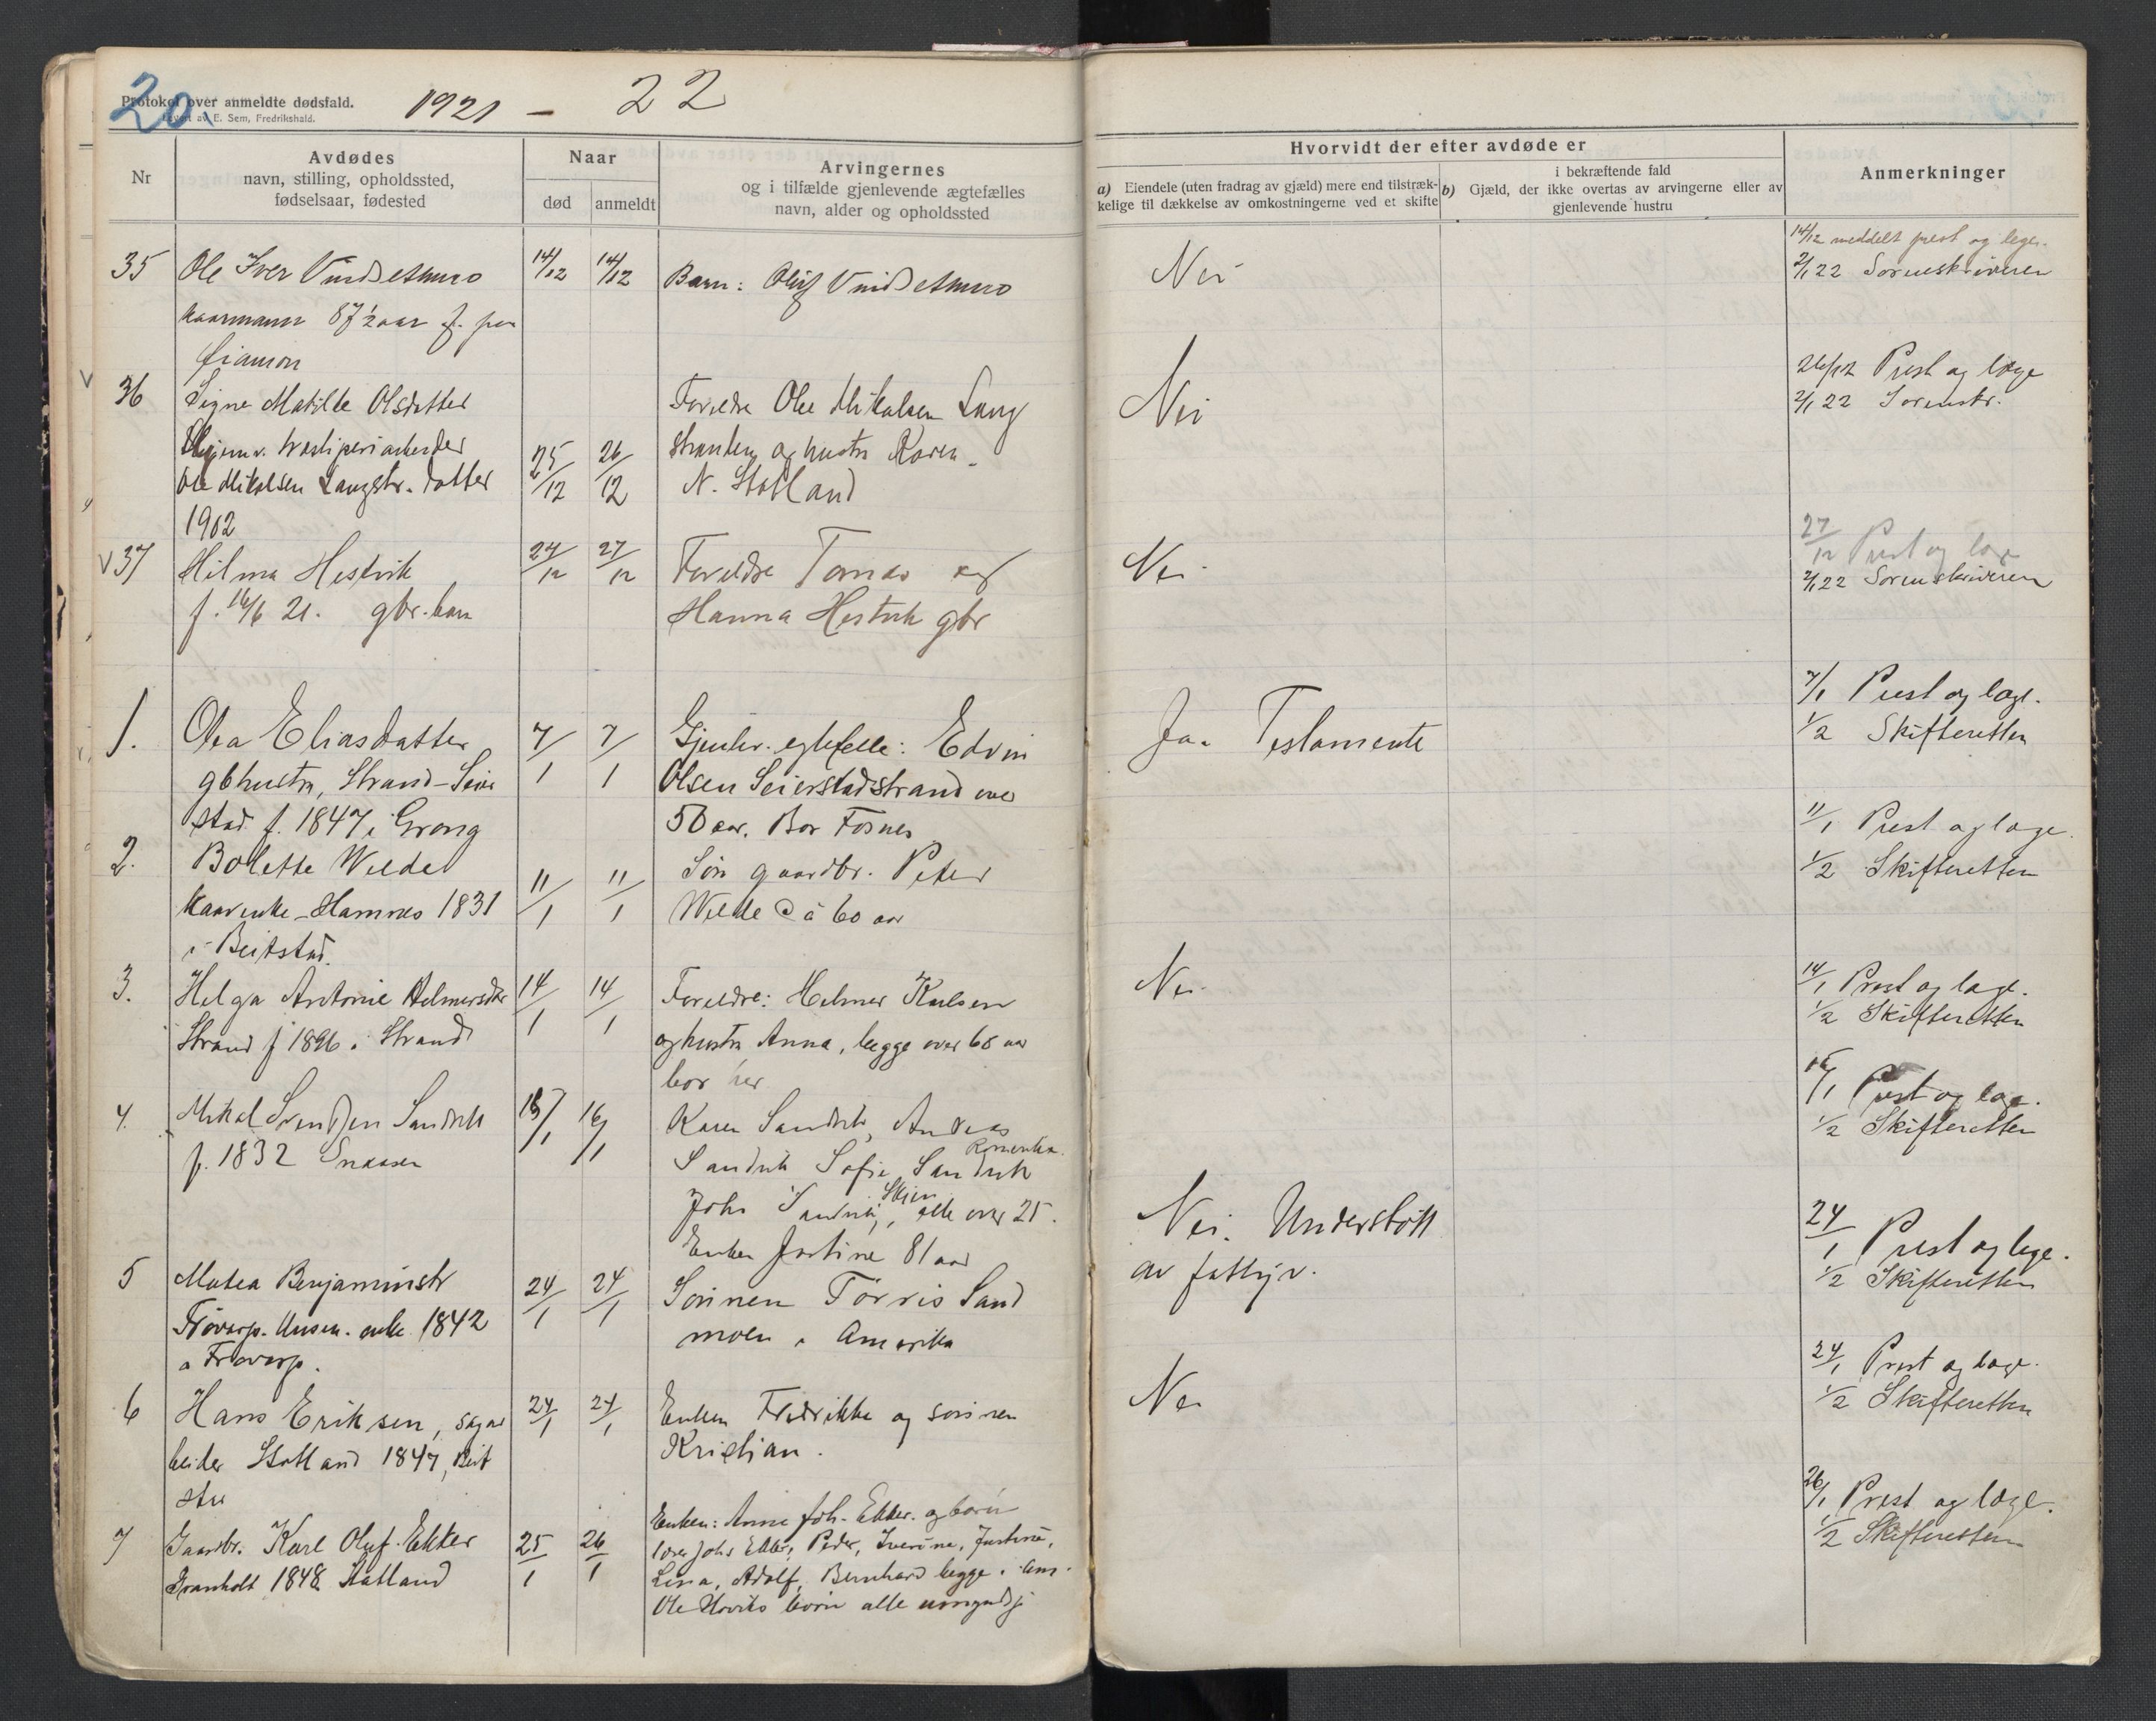 20.
Protokol over anmeldte dødsfald.
Levert av E. Sem, Fredrikshald.
1921 - 22
Nr
Avdødes
navn, stilling, opholdssted,
fødselsaar, fødested
Naar
død
anmeldt
Arvingernes
og i tilfælde gjenlevende ægtefælles
navn, alder og opholdssted
Hvorvidt der efter avdøde er
a) Eiendele (uten fradrag av gjæld) mere end tilstræk-
kelige til dækkelse av omkostningerne ved et skifte
i bekræftende fald
b) Gjæld, der ikke overtas av arvingerne eller av
gjenlevende hustru
Anmerkninger
35
Ole Iver Vindsetmo
kaarmann 87½ aar f. paa
14/12
14/12
Barn: Oluf Vindsetmo
Nei
14/12 meddelt prest og læge.
2/1 22 Sorenskriveren
36
Signe Matilde Olsdatter
Ole Mikalsen Langstr. datter
1902
25/12
26/12
Foreldre Ole Mikalsen Lang
stranden og hustru Karen
N. Statland
Nei
26/12 Prest og læge
2/1 22 Sorenskr.
V 37
Hilma Hestvik
f. 16/6 21. gbr. barn
24/12
27/12
Foreldre Tomas og
Hanna Hestvik gbr
Nei
27/12 Prest og læge
2/1 22 Sorenskriveren
1.
Olea Eliasdatter
gbhustru, Strand-Seier
stad f. 1847 i Grong
7/1
7/1
Gjenlev. egtefelle: Edvin
Olsen Seierstadstrand over
50 aar. Bor Fosnes
Ja. Testamente
7/1 Prest og læge.
1/2 Skifteretten
2.
Bolette Welde
kaarenke Hamnes 1831
i Beitstad.
11/1
11/1
Søn gaardbr. Peter
Welde Ca 60 aar
11/1 Prest og læge.
1/2 Skifteretten
3.
Helga Antonie Helmersdtr
Strand f 1896 i Strand
14/1
14/1
Foreldre: Helmer Karlsen
og hustru Anna, begge over 60 aar
bor her
Nei
14/1 Prest og læge.
1/2 Skifteretten
4.
Mikal Svendsen Sandvik
f. 1832 Snaasen
15/1
16/1
Karen Sandvik, Andreas
Sandvik Sofie Sandvik
Johs Sandvik, Skjen, alle over 25.
Enken Justine 81 aar
16/1 Prest og læge.
1/2 Skifteretten
5
Matea Benjaminsdtr
enke 1842
24/1
24/1
Sønnen Torris Sand
moen i Amerika
Nei. Understøtt
av fattigv.
24/1 Prest og læge.
1/2 Skifteretten
6
Hans Eriksen, sagar
beider Statland 1847, Beit
stad
24/1
24/1
Enken Fredrikke og sønnen
Kristian.
Nei
24/1 Prest og læge.
1/2 Skifteretten
7
Gaardbr. Karl Oluf Ekker
Granholt 1848 Statland
25/1
26/1
Enken: Anne Joh. Ekker og børn
Johs Ekker, Peder, Iverine, Justine,
Lina, Adolf, Bernhard begge i Am.
Ole Hoviks børn alle umyndji
26/1 Prest og læge.
1/2 Skifteretten